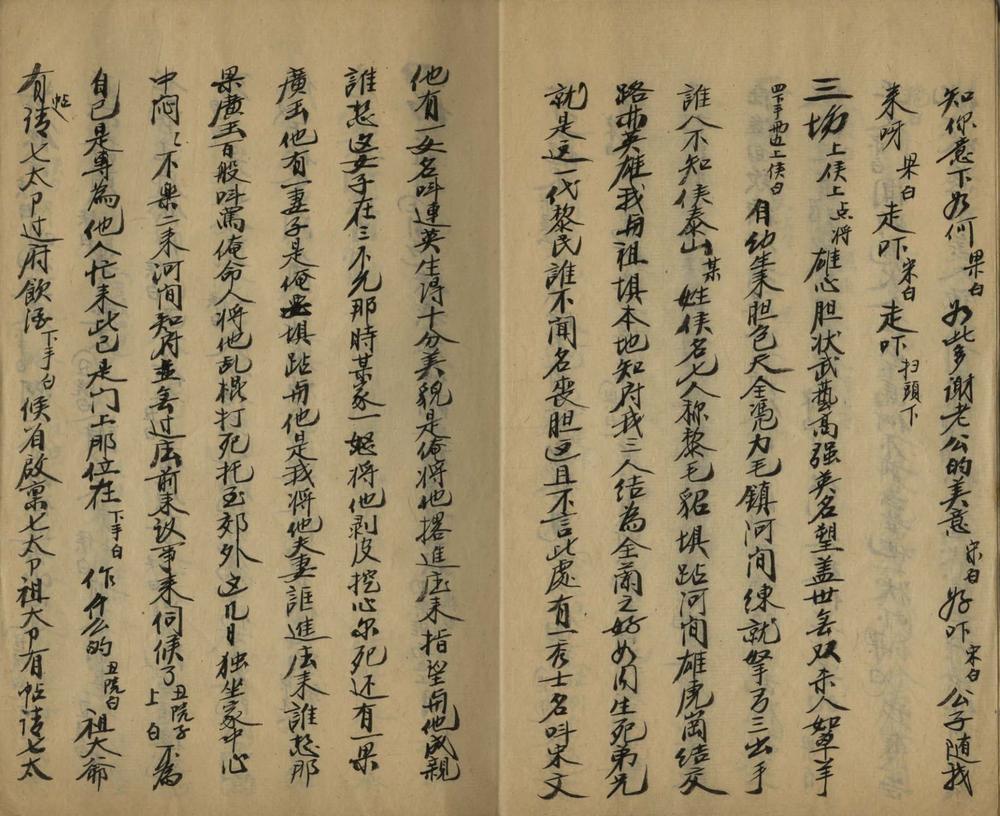 知你意下如何果白如此多谢老公的美意宋白好吓宋白公子随我
来呀果白走吓宋白走吓扫頭下
三场上侯上点将雄心胆状武藝高强英名塱盖世無双杀人如草羊
四下手两边上侯白自幼生来胆色大全凭力毛鎮河间練就拏方三出手
誰人不知侯泰山某姓侯名七人称黎毛貂填跕河间雄虎崗结交
路林英雄我甪祖填本地知府我三人结為全蘭之好如同生死弟兄
就是这一代黎民誰不闻名丧胆这且不言此處有一秀士名呌宋文
他有一女名呌連英生得十分美貌是俺将他撂進庄来指望甪他成親
誰想这女子在三不允那時某家一怒将他剥皮挖心尔死还有一果
廣玉他有一妻子是俺填跕甪他是我将他夫妻誆進庄来誰想那
果廣玉百般呌罵俺命人将他乱棍打死托至郊外这几日独坐家中心
中悶〻不樂二来河间知府並無过庄前来议事来伺候了丑院子上白不為
自己是專為他人忙来此已是门上那位在下手白作什么的丑院白祖大爷
有帖請七太卩过府飲酒下手白候者啟禀七太卩祖大卩有帖請七太